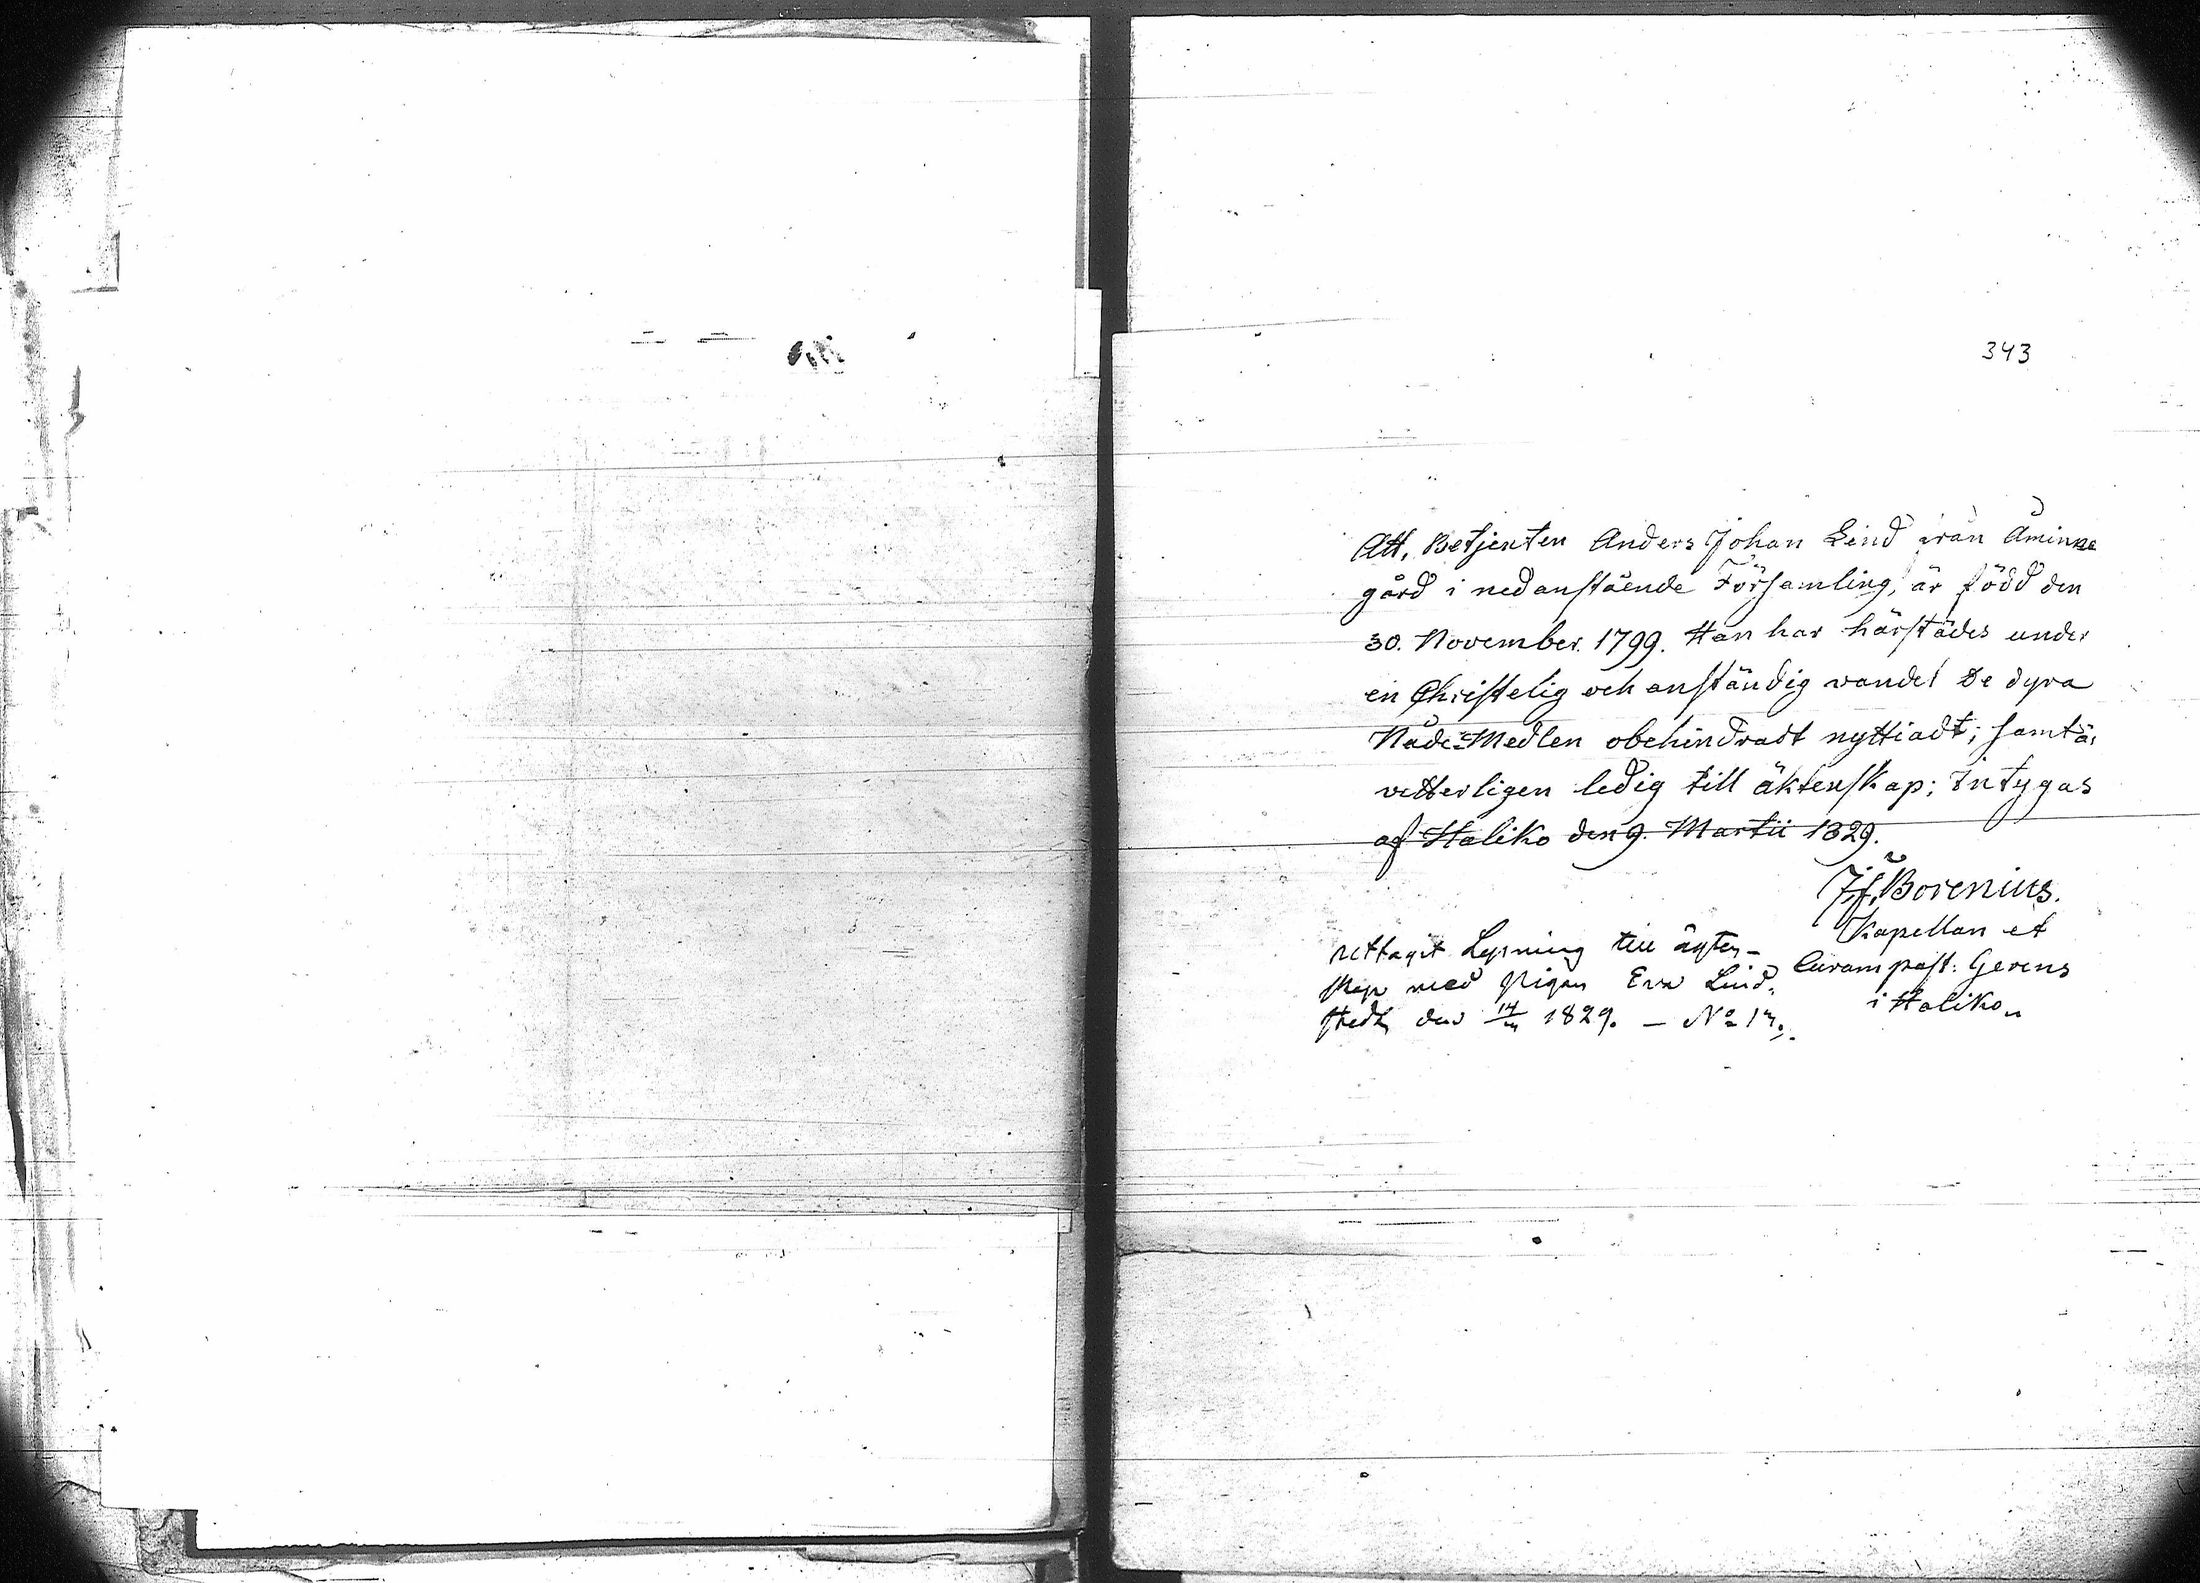 343
Att, Betjenten Anders Johan Lind från Åminne
gård i nedanstående Församling, är född den
30. November. 1799. Han har härstädes under
en Christelig och anständig vandel de dyra
Nåde-Medlen obehindradt nyttiadt; samt är
vetterligen ledig till äktenskap; Intygas
af Haliko den 9. Martii 1829.
J. f. Borenius.
Kapellan et
Curam past: Gerens
i Haliko
uttagit Lysning till ägten-
skap med Pigan Eva Lind-
stedt den 14/ 1829. — No